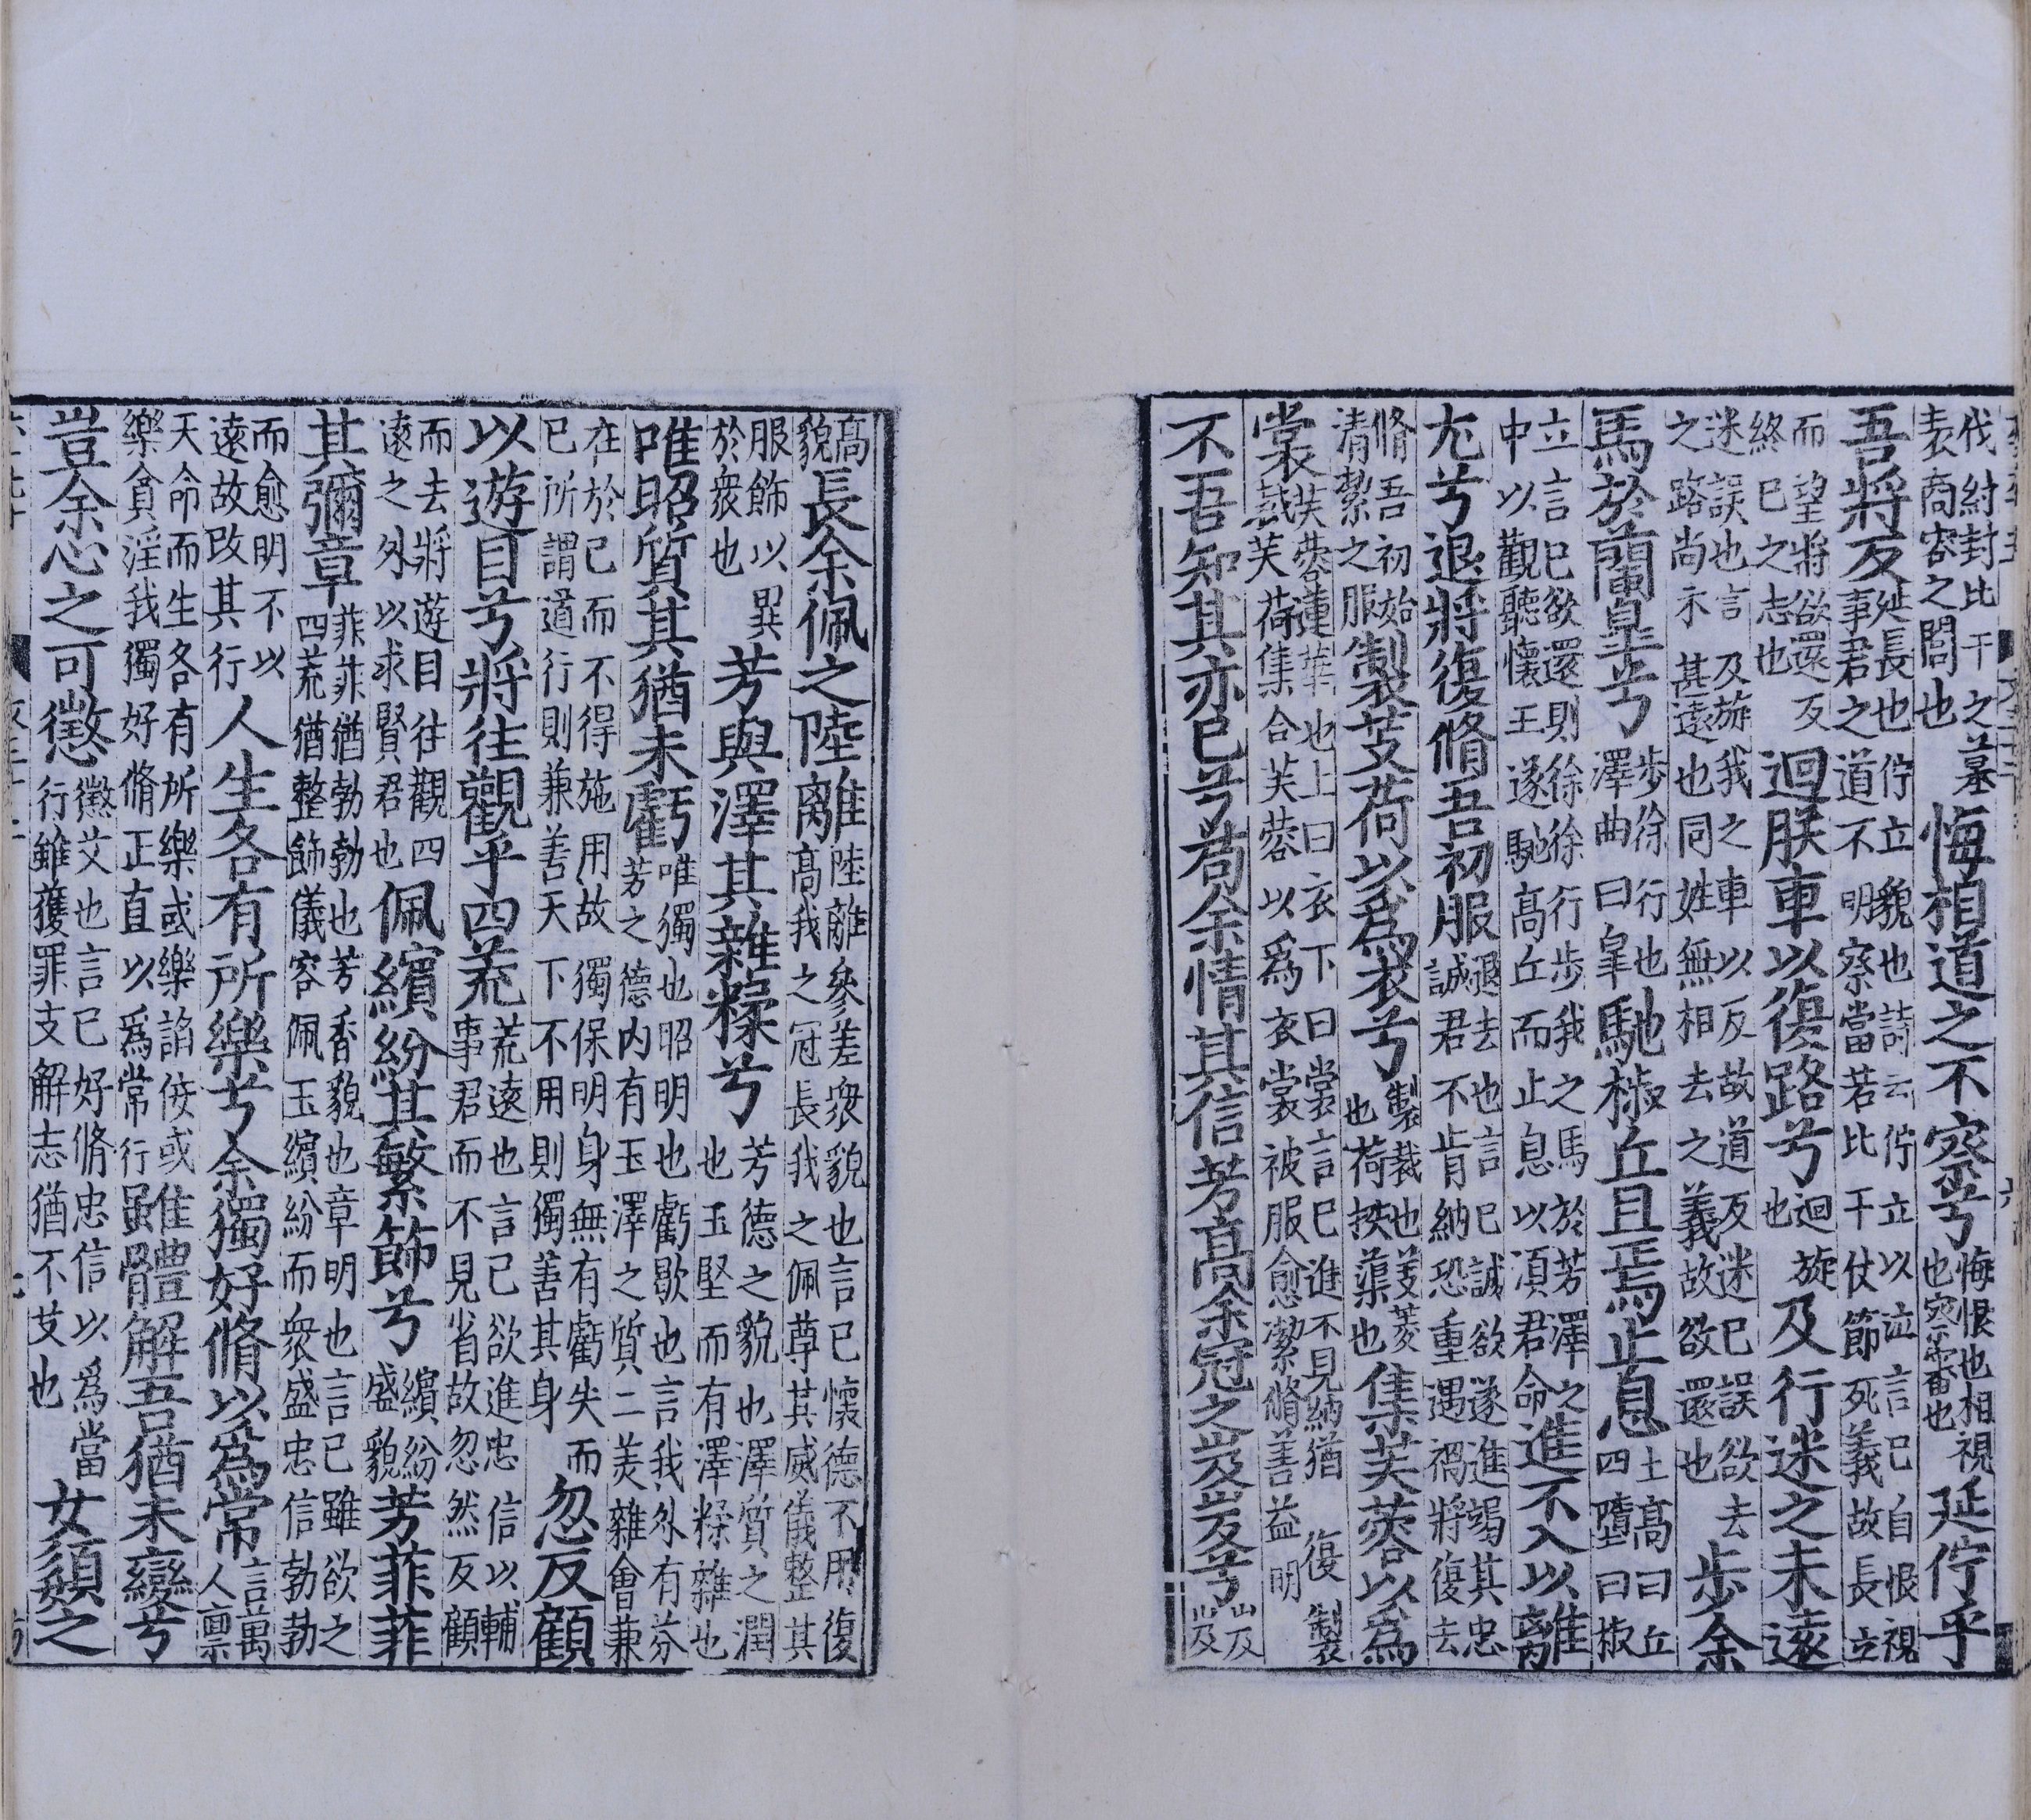 伐紂封比干之墓表商容之閭也悔相道之不察兮悔恨也相視也察審也延佇乎
吾將反延長也佇立貌也詩云佇立以泣言已自恨視事君之道不明察當若比干仗節死義故長立
而望將欲還反終已之志也迴朕車以復路兮迴旋也及行迷之未遠
迷誤也言及旋我之車以反故道反迷已誤欲去之路尚示甚遠也同姓無相去之義故欲還也步余
馬於蘭皐兮步徐行也澤曲曰皐馳椒丘且焉止息土髙曰丘四墮曰椒
立言已欲還則徐徐行步我之馬於芳澤之中以觀聽懷王遂馳髙丘而止息以須君命進不入以離
尤兮退將復脩吾初服退去也言已誠欲遂進竭其忠誠君不肯納恐重遇禍將復去
脩吾初始清絜之服製芰荷以爲衣兮製裁也芰菱也荷扶蕖也集芙蓉以爲
裳芙蓉蓮華也上曰衣下曰裳言已進不見納猶復製裁芙荷集合芙蓉以爲衣裳被服愈潔脩善益明
不吾知其亦已兮苟余情其信芳髙余冠之岌岌兮岌岌
高貌長余佩之陸離陸離參差衆貌也言已懷德不用復髙我之冠長我之佩尊其威儀整其
服飾以異於衆也芳與澤其雜糅兮芳德之貌也澤質之潤也玉堅而有澤糅雜也
唯昭質其猶未虧唯獨也昭明也虧歇也言我外有芬芳之德内有玉澤之質二美雜會兼
在於已而不得施用故獨保明身無有虧失而已所謂道行則兼善天下不用則獨善其身忽反顧
以遊目兮將往觀乎四荒荒遠也言已欲進忠信以輔事君而不見省故忽然反顧
而去將遊目往觀四遠之外以求賢君也佩繽紛其繁飾兮繽紛盛貌芳菲菲
其彌章菲菲猶勃勃也芳香貌也章明也言已雖欲之四荒猶整飾儀容佩玉繽紛而衆盛忠信勃勃
而愈明不以遠故改其行人生各有所樂兮余獨好脩以爲常言萬人禀
天命而生各有所樂或樂諂佞或樂貪淫我獨好脩正直以爲常行雖體解吾猶未變兮
豈余心之可懲懲艾也言已好脩忠信以爲當行雖獲罪支解志猶不艾也女嬃之